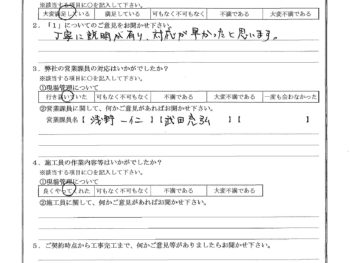 ※該当する項目に○を記入して下さい。
大変満足している 満足している 可もなく不可もなく 不満である 大変不満である
2．「1」についてのご意見をお聞かせ下さい。
丁寧に説明が有り、対応が早かったと思います。
3．弊社の営業課員の対応はいかがでしたか？
※該当する項目に○を記入して下さい。
①現場管理について
行き届いていた 可もなく不可もなく 不満である 大変不満である 一度も会わなかった
②営業課員に関して、何かご意見があればお聞かせ下さい。
営業課員名【浅野 一仁】【武田 虎弘】【 】
4．施工員の作業内容等はいかがでしたか？
※該当する項目に○を記入して下さい。
①現場管理について
良くやってくれた 可もなく不可もなく 不満である 大変不満である
②施工員に関して、何かご意見があればお聞かせ下さい。
5．ご契約時点から工事完工まで、何かご意見等がありましたらお聞かせ下さい。